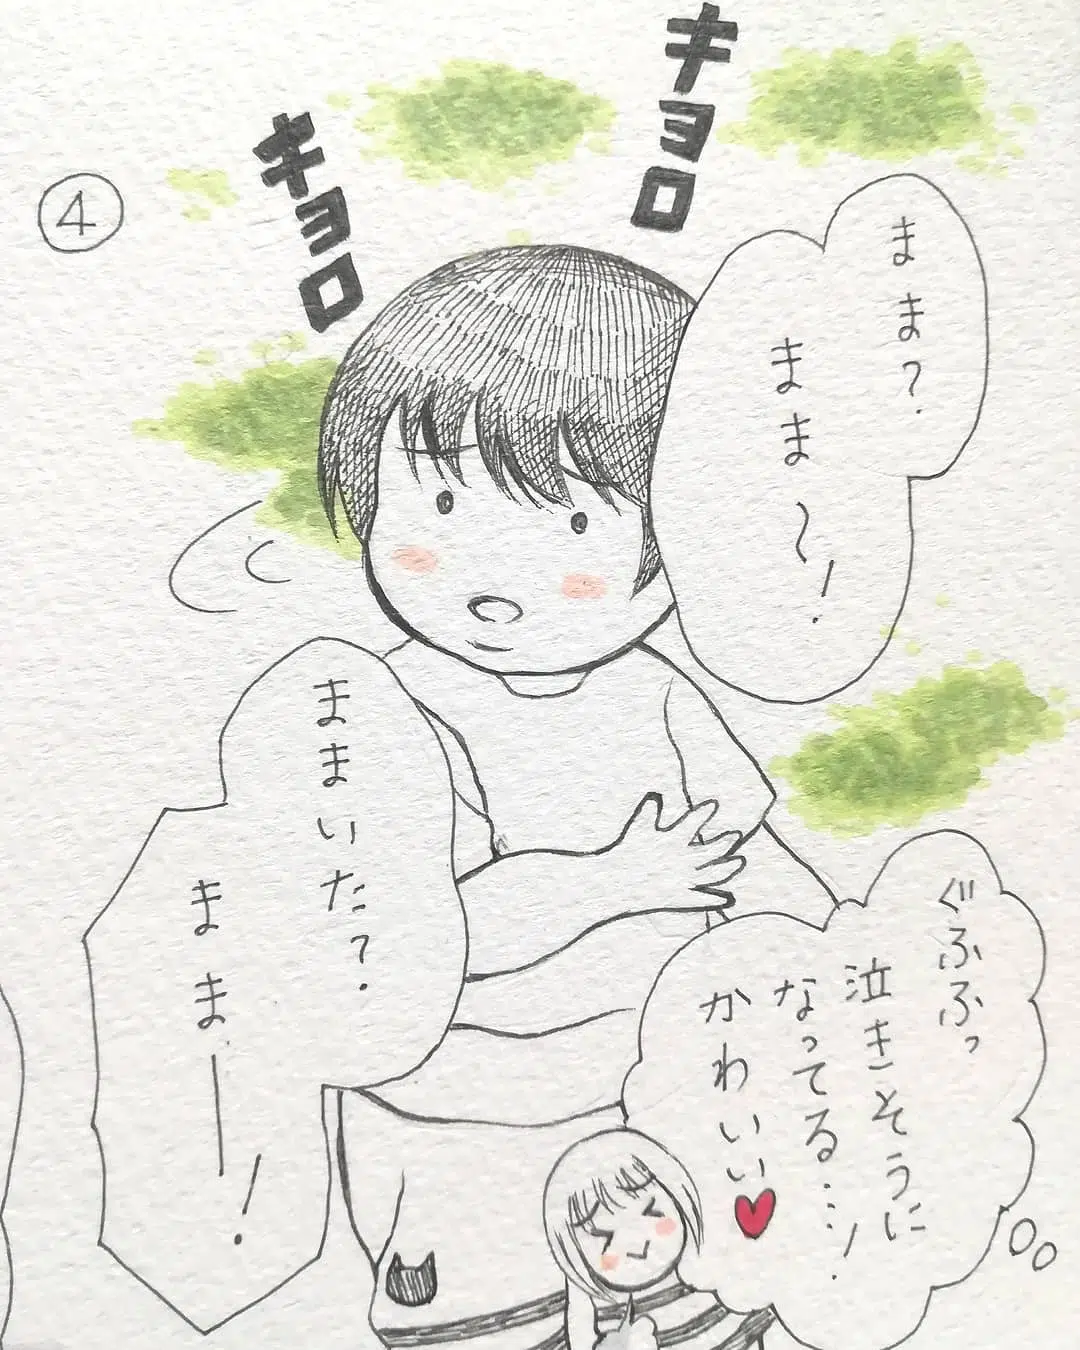 ④
キョロ
キョロ
まま?
まま〜!
ままいた?
ままー!
ぐふふっ
泣きそうに
なってる…!
かわいい♥